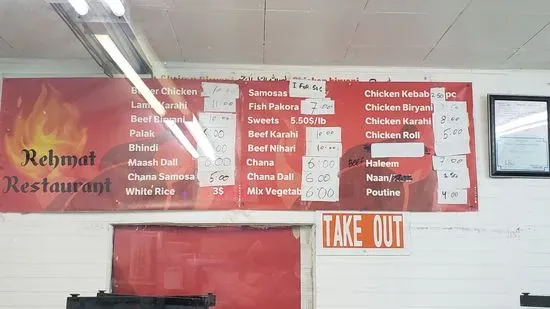 Rehmat
Restaurant
Butter Chicken 10.00
Lamb Karahi 11.00
Beef Biryani
Palak 6.00
Bhindi
Maash Dall 6.00
Chana Samosa 5.00
White Rice 3$
Samosas 1 FOR 50¢
Fish Pakora 7.00
Sweets 5.50$/lb
Beef Karahi 10.00
Beef Nihari 10.00
Chana 6:00
Chana Dall 6.00
Mix Vegetab 6.00
Chicken Kebab 2.50 pc
Chicken Biryani
Chicken Karahi 8:00
Chicken Roll 5.00
BEEF Haleem 7.00
Naan/ 1.50
Poutine 4.00
TAKE OUT